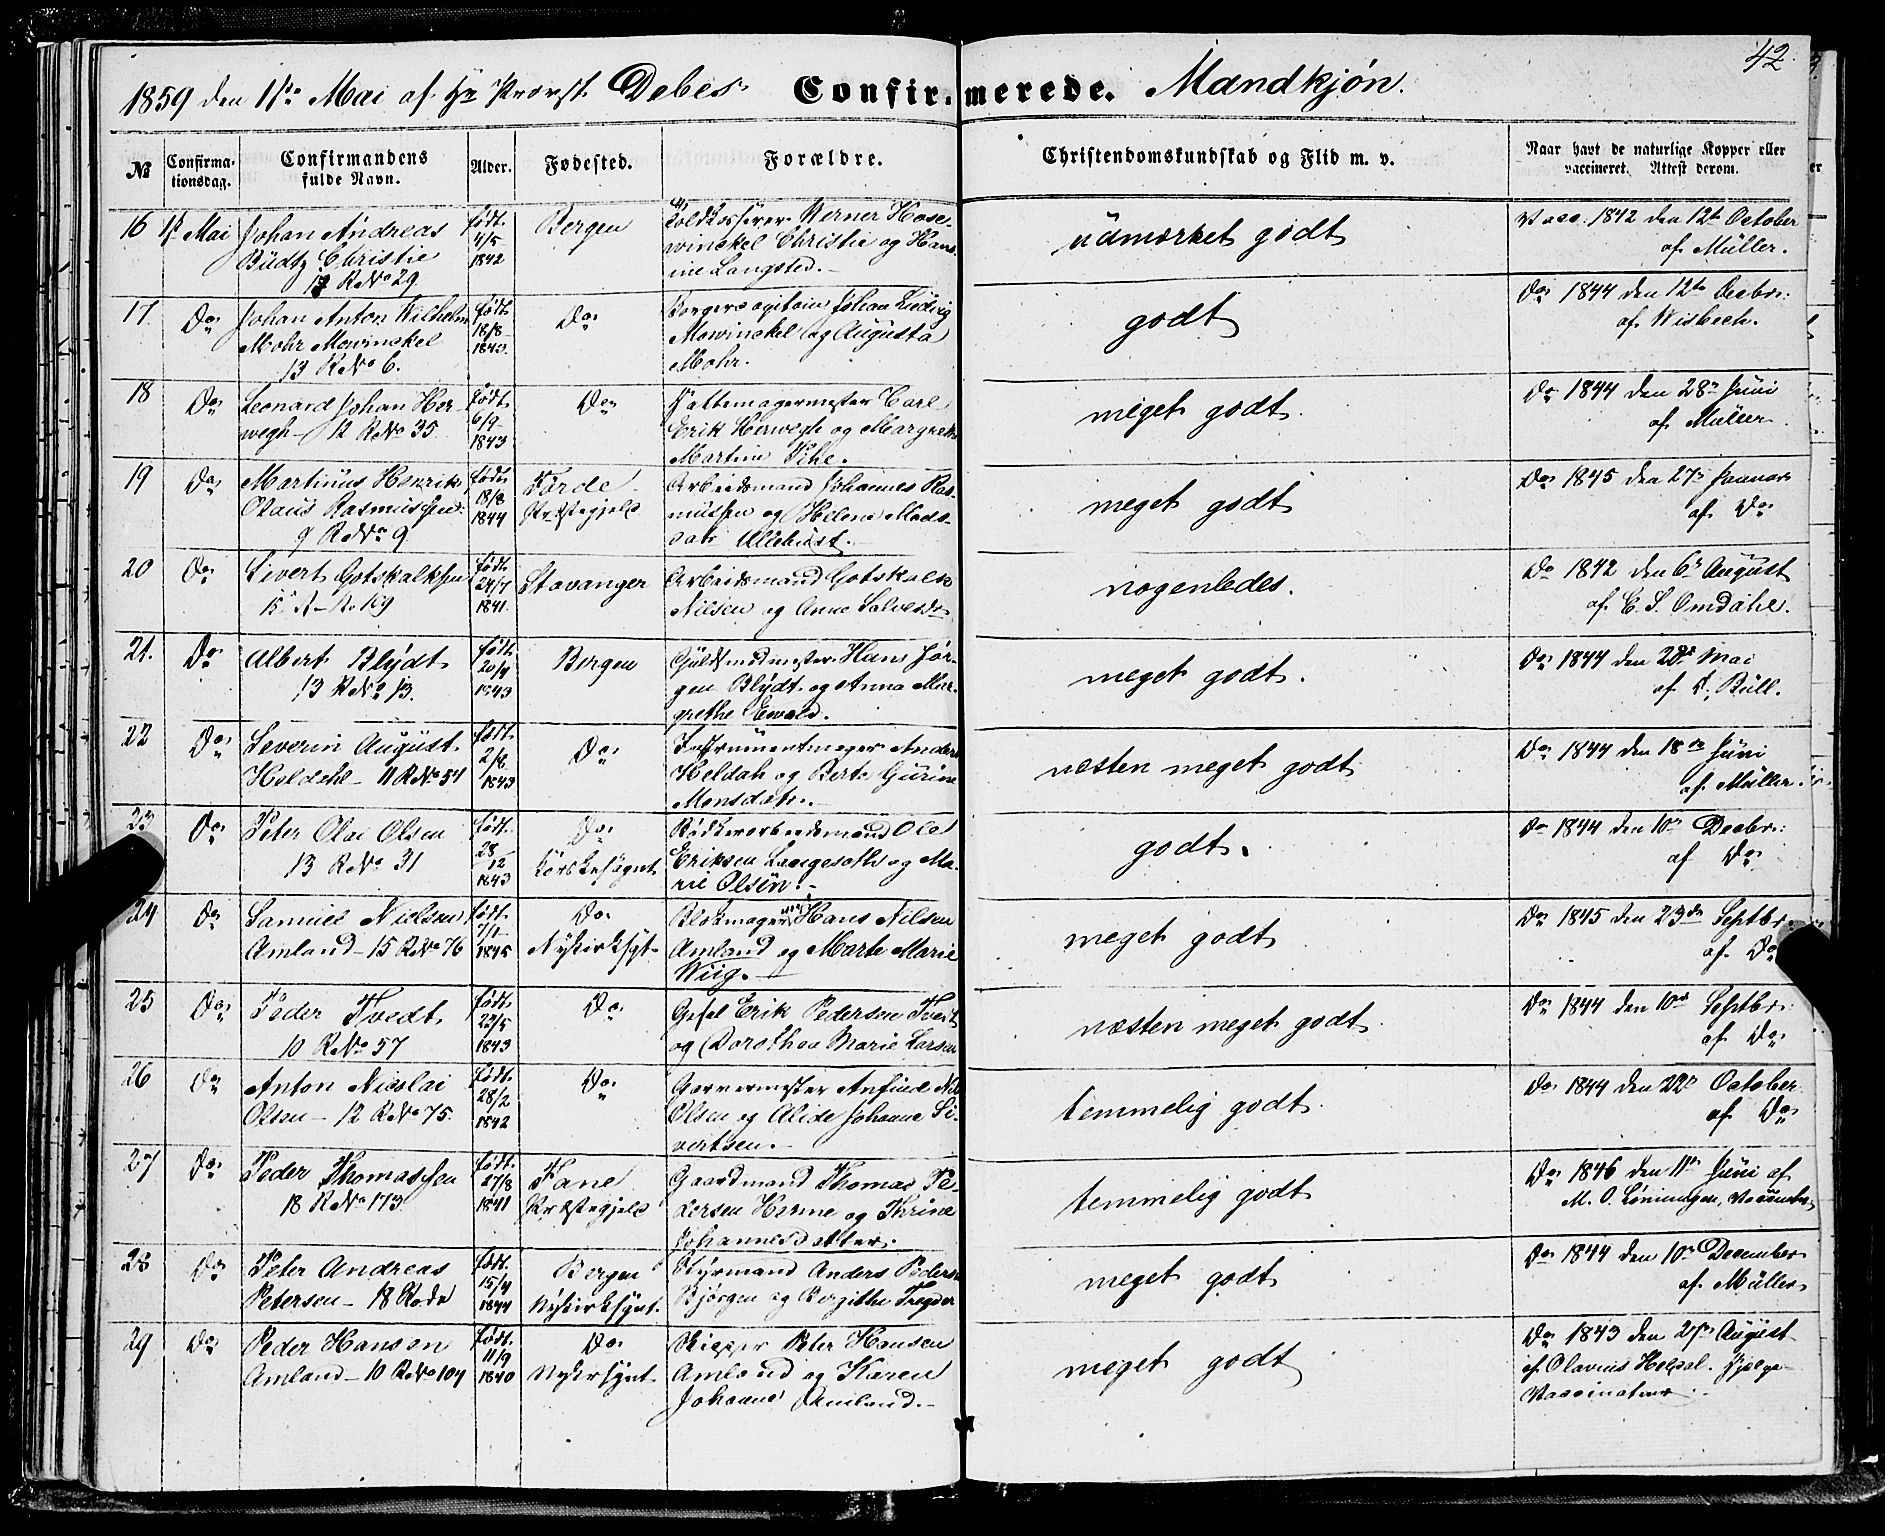 42.
1859 den 1ste Mai af Hr Provst Debes. Confirmerede. Mandkjøn.
№ Confirmationsdag. Confirmandens fulde Navn. Alder. Fødested. Forældre. Christendomskundskab og Flid m. v. Naar havt de naturlige Kopper eller vaccineret. Attest derom.
16 1st Mai Johan Andreas født Bergen Werner Hose- udmærket godt Vacc. 1842 den 12te October
Büdtz Christie 4/5 winckel Christie og Hans- af Müller.
13 R No 29 1842 ine Langsted.
17. Do Johan Anton Wilhelm født Do Borgercapitain Johan Ludvig godt Do 1844 den 12te Decbr:
Mohr Mowinckel 18/8 Mowinckel og Augusta af Wisbech.
13 R No 6. 1843. Mohr.
18 Do Leonard Johan Her- født Do Hattemagermester Carl meget godt. Do 1844 den 28de Juni
wegh - 12 R No 35. 6/9 Erik Herwegh og Margrethe af Müller.
1843 Martine Vihe.
19 Do Martinus Henrik født Førde Arbeidsmand Johannes Ras- meget godt Do 1845 den 27de Januar
Olaus Rasmussen 18/8 Præstegjeld mussen og Helene Mads- af Do
9 R No 9 1844 datr
20 Do Sivert Gotskalksen født Stavanger Arbeidsmand Gotskalk nogenledes. Do 1842 den 6te August
15 R No 109 24/7 Nilsen og Anne af C. S. Omdahl.
1841.
21. Do Albert Blydt født Bergen Guldsmedmester Hans Jør- meget godt. Do 1844 den 28de Mai
13 R No 13. 20/9 gen Blydt og Anna Mar- af Bull.
1843 grethe Ewald.
22 Do Severin August født Do Instrumentmager Anders næsten meget godt Do 1844 den 18de Juni
Heldahl - 11 R No 54 2/8 Heldah og Berte Gurine af Müller
1843 Monsdatr.
23 Do Peter Olai Olsen født Do Bødkerarbeidsmand Ole godt. Do 1844 den 10de Decbr:
13 R No 31 28/12 Korskesognet Eriksen og Ma- af Do
1843 rie Olsen.
24 Do Samuel Nielsen født Do Blokmager Hans Nilsen meget godt Do 1845 den 23de Septbr
Amland - 15 R No 76 7/1 Nykirksgt. Amland og Marte Marie af Do
1845 Wiig.
25 Do Peder Tvedt født Do Gesel Erik Pedersen Tvedt næsten meget godt Do 1844 den 10de Septbr.
10 R No 57 22/5 og Dorothea Marie Larsen af Do
1843
26 Do Anton Nicolai født Do Garvermester Anfind temmelig godt. Do 1844 den 22de October
Olsen - 12 R No 75. 28/2 Olsen og Alide Johanne Si- af Do
1842 vertsen.
27 Do Peder Thomassen født Fane Gaardmand Thomas Pe- temmelig godt Do 1846 den 11te Juni af
18 R No 173. 27/8 Præstegjeld dersen og Thrine M. O.
1841 Johannesdatter.
28 Do Peter Andreas født Bergen Styrmand Anders Peders meget godt Do 1844 den 10de December
Petersen - 18 Rode 15/4 Nykirksgnt. Bjørgen og Bergithe af Müller
1844
29 Do Peder Hansen født Do Skipper Peter Hansen meget godt Do 1843 den 27de August
Amland - 10 R No 104 11/9 Nykirksgnt. Amland og Karen af Olavius
1840 Johanne Amland. Vaccinateur